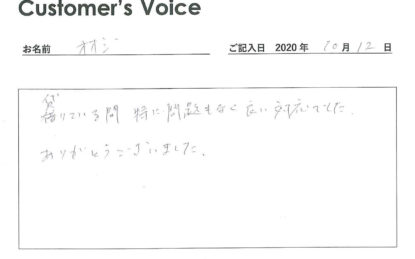 Customer's Voice
お名前 オオジ ご記入日 2020 年 10 月 12 日
借りている間 特に問題もなく 広い対応でした。
ありがとうございました。